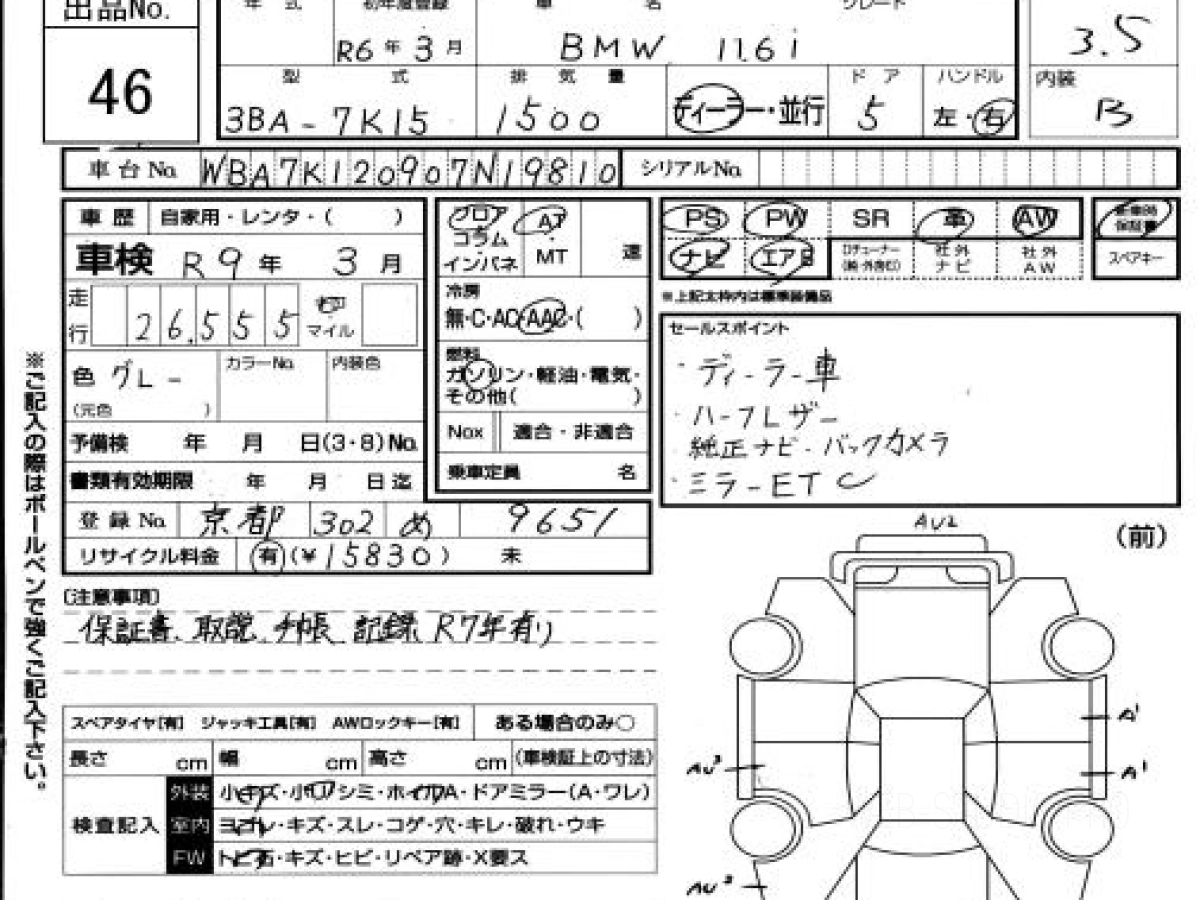 出品No.
46
年 式 初年度登録 車 名 グレード
R6年3月 BMW 116i 3.5
型 式 排 気 量 ドア ハンドル 内装
3BA-7K15 1500 ディーラー・並行 5 左・右 B
車台No. WBA7K120907N19810 シリアルNo.
車歴 自家用・レンタ・( )
車検 R9年 3月
走行 26,555 マイル
色 グレー カラーNo. 内装色
(元色 )
予備検 年 月 日(3・8)No.
書類有効期限 年 月 日迄
登録No. 京都 302 め 9651
リサイクル料金 有(¥15830) 未
フロア AT
コラム ・ 速
インパネ MT
冷房
無・C・AC・AAC・( )
燃料
ガソリン・軽油・電気・
その他( )
Nox 適合・非適合
乗車定員 名
PS PW SR 革 AW 新車時保証書
ナビ エアB TVチューナー 社外ナビ 社外AW スペアキー
※上記太枠内は標準装備品
セールスポイント
・ディーラー車
・ハーフレザー
純正ナビ・バックカメラ
・ミラーETC
※ご記入の際はボールペンで強くご記入下さい。
(注意事項)
保証書、取説、手帳 記録 R7年有り
スペアタイヤ[有] ジャッキ工具[有] AWロックキー[有] ある場合のみ○
長さ cm 幅 cm 高さ cm (車検証上の寸法)
検査記入
外装 小キズ・小凹・シミ・ホイルA・ドアミラー(A・ワレ)
室内 ヨゴレ・キズ・スレ・コゲ・穴・キレ・破れ・ウキ
FW トビ石・キズ・ヒビ・リペア跡・X要ス
AU2
(前)
A1
AU3
A1
AU2